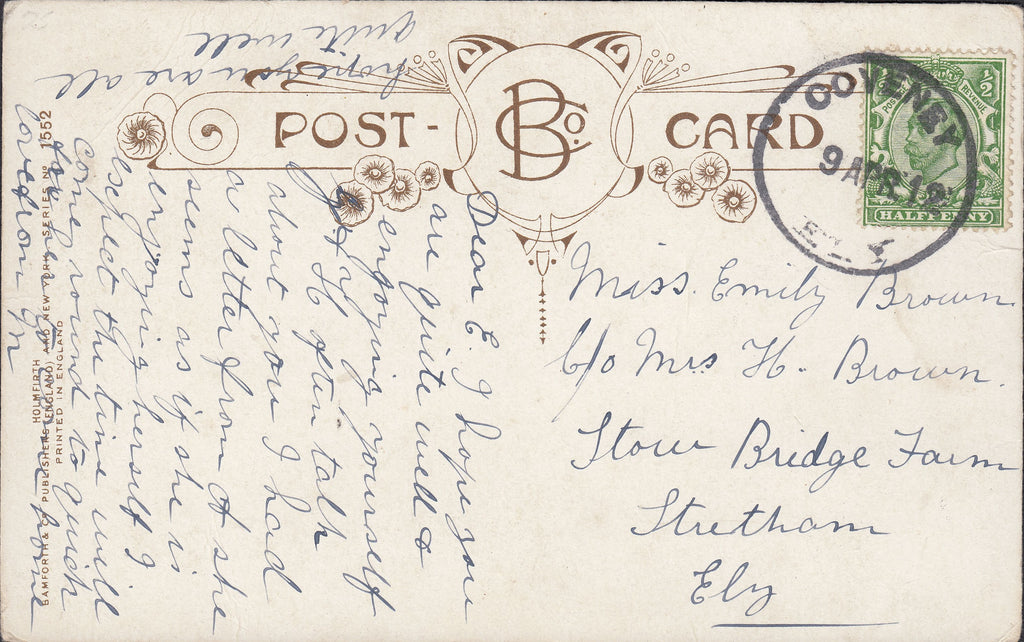 POST-
B Co.
CARD
½
POSTAGE
REVENUE
HALFPENNY
COVENEY
9 APR 12
ELY
Miss. Emily Brown
c/o Mrs H. Brown.
Stow Bridge Farm
Stretham
Ely
Dear E. I hope you
are quite well &
enjoying yourself
H often talk
about you I had
a letter from A she
seems as if she is
enjoying herself I
expect the time will
come round to quick
to come home
love from M
hope you are all
quite well
HOLMFIRTH
BAMFORTH & CO PUBLISHERS (ENGLAND) AND NEW YORK. SERIES NO 1552
PRINTED IN ENGLAND